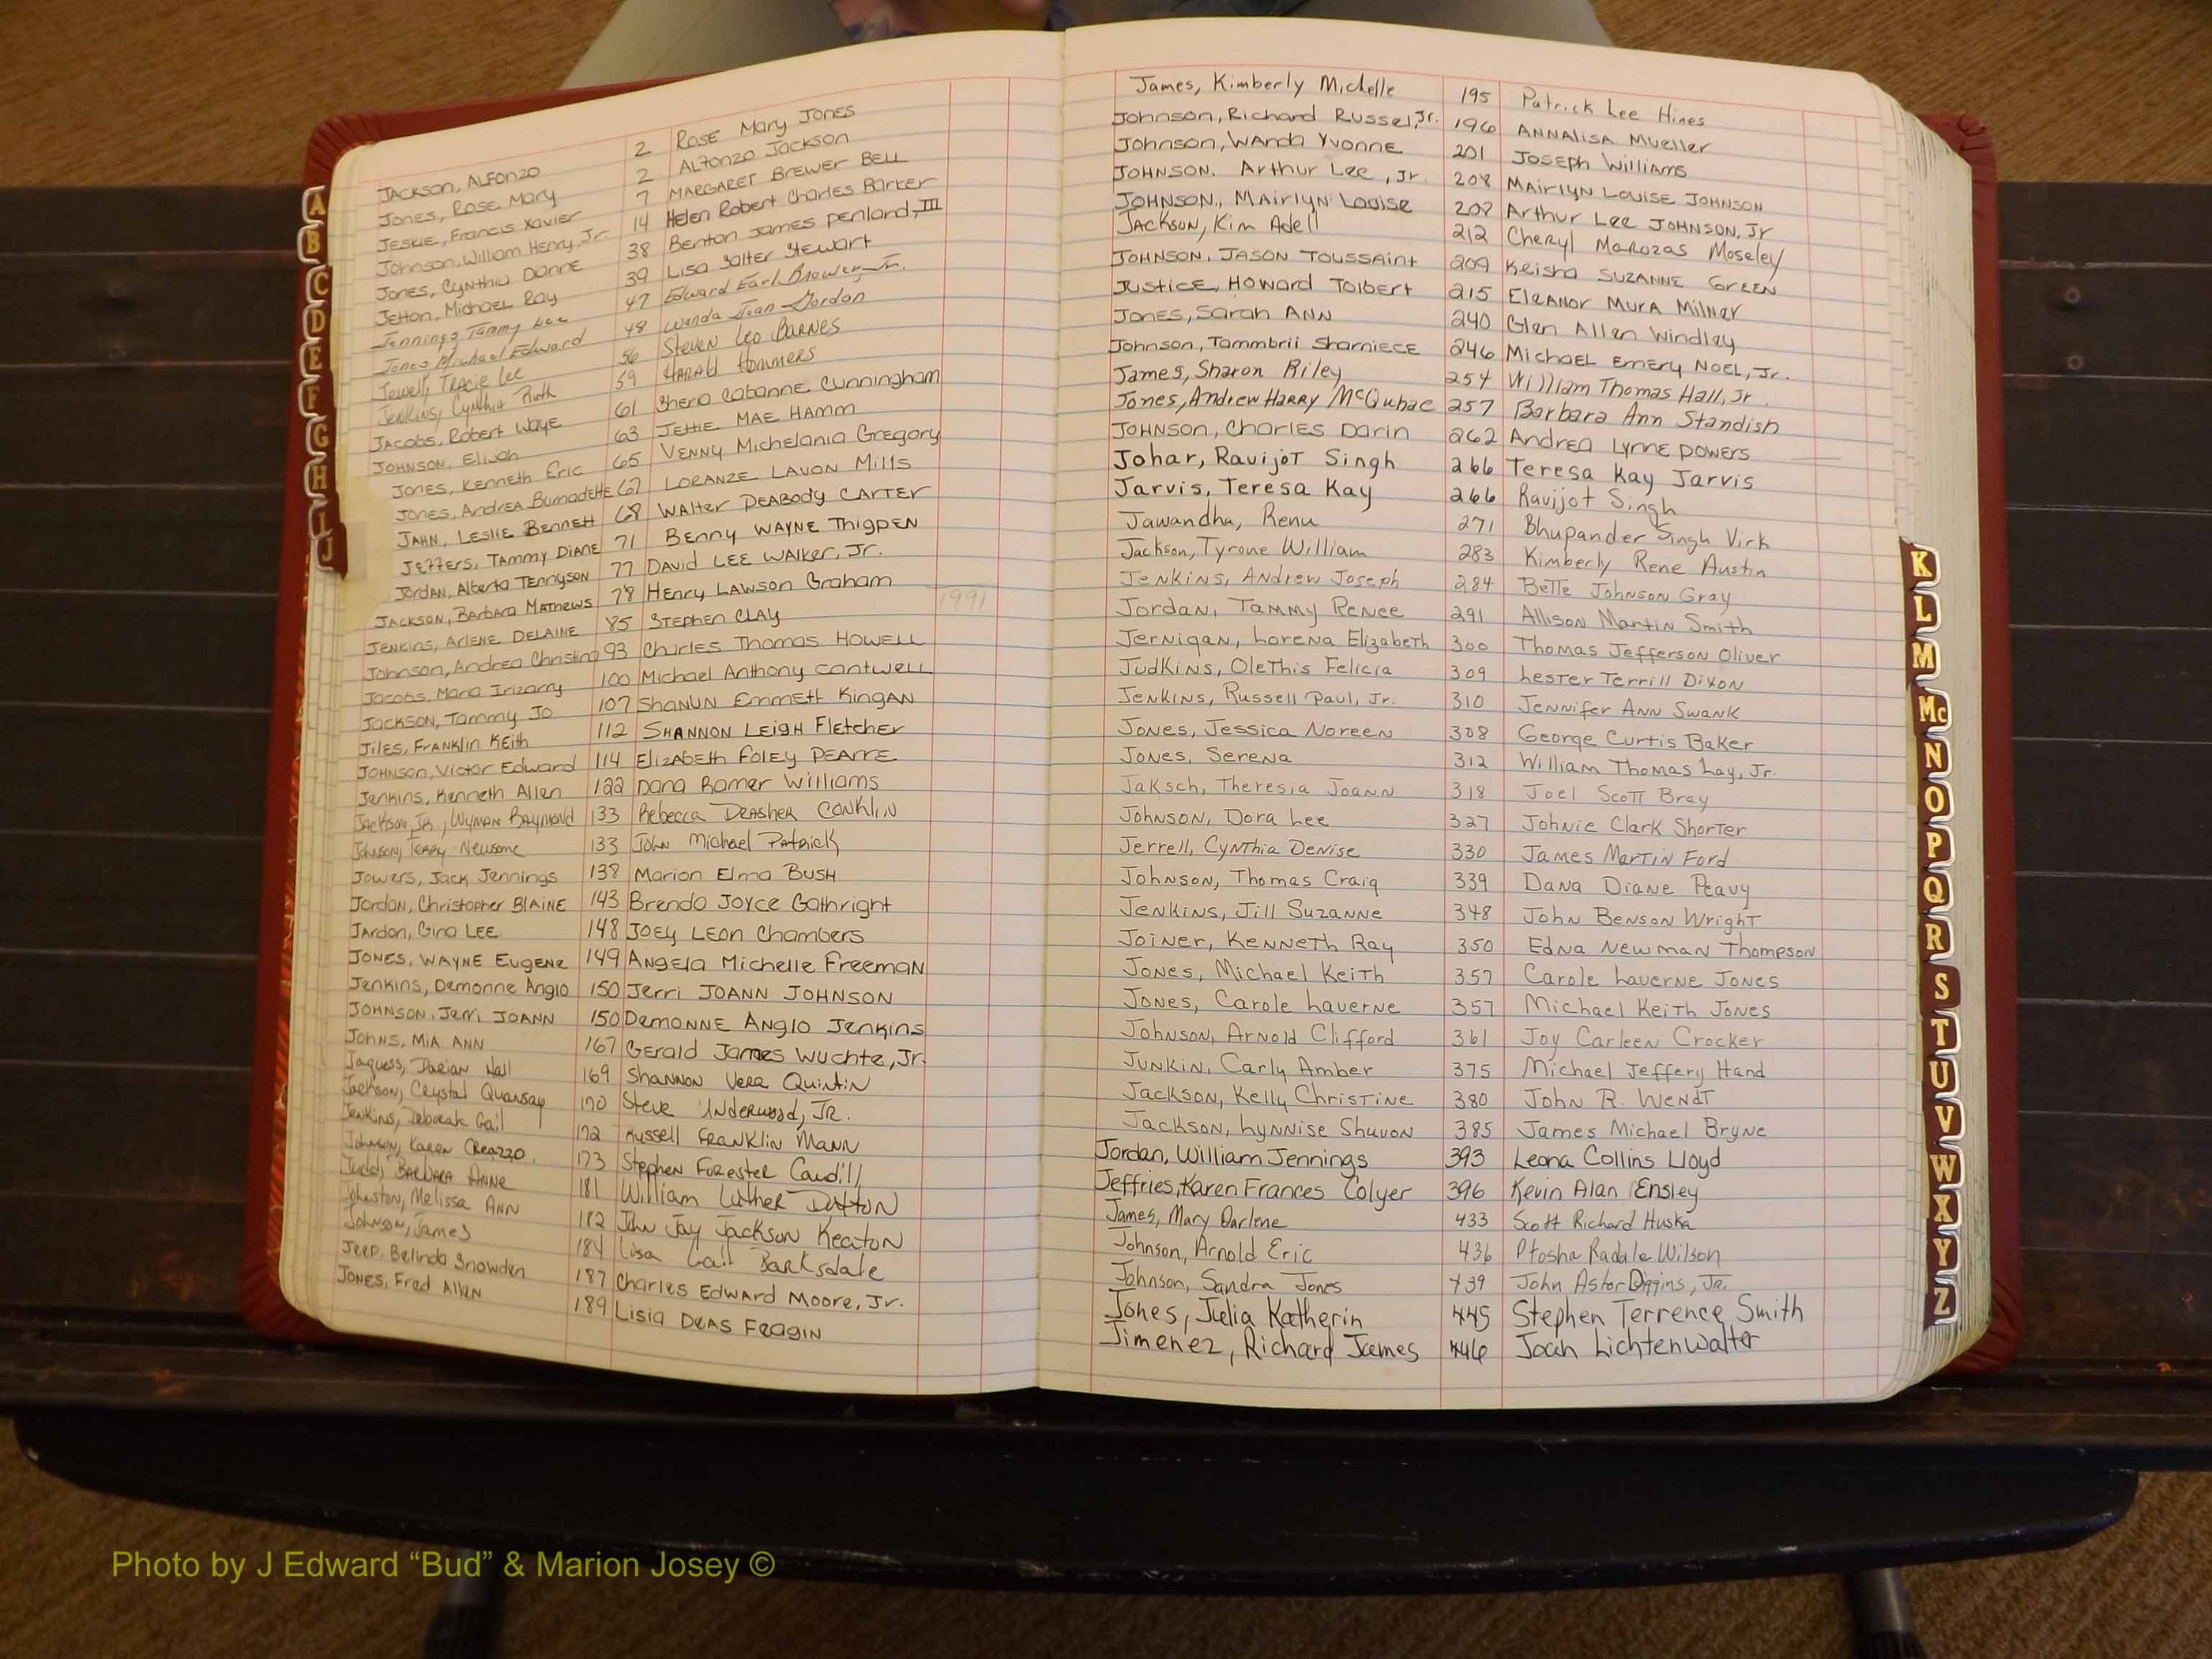 A
B
C
D
E
F
G
H
I
J
JACKSON, ALFONZO 2 ROSE MARY JONES
Jones, Rose Mary 2 ALFONZO JACKSON
JESKIE, Francis Xavier 7 MARGARET BREWER BELL
Johnson, William Henry Jr. 14 Helen Robert Charles Parker
Jones, Cynthia Dianne 38 Benton James Penland, III
Jetton, Michael Ray 39 Lisa Salter Stewart
Jennings Tammy Lee 47 Edward Earl Brewer, Jr.
Jones Michael Edward 48 Wanda Jean Gordon
Jewell, Tracie Lee 56 Steven Leo BARNES
Jenkins, Cynthia Ruth 59 HARALD Hommers
JACOBS, Robert Waye 61 Sheria Cabanne Cunningham
JOHNSON, Elijah 63 JETTIE MAE HAMM
Jones, Kenneth Eric 65 VENNY Michelania Gregory
Jones, Andrea Burnadette 67 LORANZE LAVON Mills
JAHN, LESLIE BENNETT 68 WALTER PEABODY CARTER
JEFFERS, TAMMY DIANE 71 BENNY WAYNE THIGPEN
JORDAN, Alberta TENNYSON 77 DAVID LEE WALKER, Jr.
JACKSON, BARBARA MATHEWS 78 HENRY LAWSON Graham 1991
JENKINS, ARLENE DELAINE 85 STEPHEN CLAY
Johnson, Andrea Christina 93 Charles Thomas HOWELL
Jacobs, Maria Irizarry 100 Michael Anthony Cantwell
JACKSON, Tammy Jo 107 SHANUN EMMETT KINGAN
JILES, FRANKLIN KEITH 112 SHANNON LEIGH Fletcher
JOHNSON, Victor Edward 114 ELIZABETH FOLEY PEARRE
Jenkins, Kenneth Allen 122 Dana Ramer Williams
JACKSON, JR., WYMAN RAYMOND 133 Rebecca DRASHER CONKLIN
Johnson, TERRY Newsome 133 JOHN Michael PATRICK
JOWERS, Jack Jennings 138 Marion Elma BUSH
JORDAN, Christopher BLAINE 143 Brenda Joyce Gathright
JARDON, Gina LEE 148 JOEY LEON Chambers
JONES, WAYNE EUGENE 149 ANGELA Michelle FREEMAN
Jenkins, Demonne Anglo 150 Jerri JOANN JOHNSON
JOHNSON, Jerri JOANN 150 DEMONNE ANGLO JENKINS
JOHNS, MIA ANN 167 GERALD James Wuchte, Jr.
Jaquess, Darian Hall 169 SHANNON VERA QUINTIN
Jackson, Crystal Quansay 170 STEVE UNDERWOOD, JR.
Jenkins, Deborah Gail 172 Russell FRANKLIN MANN
Johnson, Karen CREAZZO 173 Stephen FORESTER Caudill
Judd, BARBARA ANNE 181 William Luther DUTTON
Johnston, Melissa ANN 182 John Jay Jackson KEATON
Johnson, James 184 Lisa Gail Barksdale
Jeep, Belinda Snowden 187 Charles EDWARD Moore, Jr.
JONES, Fred Allen 189 LISIA DEAS FEAGIN
James, Kimberly Michelle 195 Patrick Lee Hines
Johnson, Richard Russel, Jr. 196 ANNALISA Mueller
Johnson, WANDA YVONNE 201 JOSEPH WILLIAMS
JOHNSON, Arthur Lee, Jr. 208 MAIRLYN LOUISE JOHNSON
JOHNSON, MAIRLYN Louise 208 Arthur Lee JOHNSON, Jr
Jackson, Kim Adell 212 Cheryl Marozas Moseley
JOHNSON, JASON TOUSSAINT 209 Keisha SUZANNE GREEN
JUSTICE, HOWARD Tolbert 215 ELEANOR MURA MILNER
JONES, Sarah ANN 240 Glen Allen Windley
Johnson, Tammbrii Sharniece 246 MICHAEL EMERY NOEL, Jr.
James, Sharon Riley 254 William Thomas Hall, Jr.
Jones, Andrew HARRY McQuhae 257 Barbara Ann Standish
JOHNSON, Charles Darin 262 ANDREA LYNNE POWERS
Johar, Ravijot Singh 266 Teresa Kay Jarvis
Jarvis, Teresa Kay 266 Ravijot Singh
Jawandha, Renu 271 Bhupander Singh Virk
Jackson, Tyrone William 283 Kimberly Rene Austin
Jenkins, Andrew Joseph 284 Bette Johnson Gray
Jordan, Tammy Renee 291 Allison Martin Smith
Jernigan, Lorena Elizabeth 300 Thomas Jefferson Oliver
Judkins, Olethis Felicia 309 Lester Terrill Dixon
Jenkins, Russell Paul, Jr. 310 Jennifer Ann Swank
Jones, Jessica Noreen 308 George Curtis Baker
Jones, Serena 312 William Thomas Lay, Jr.
Jaksch, Theresia Joann 318 Joel Scott Bray
Johnson, Dora Lee 327 Johnie Clark Shorter
Jerrell, Cynthia Denise 330 James Martin Ford
Johnson, Thomas Craig 339 Dana Diane Peavy
Jenkins, Jill Suzanne 348 John Benson Wright
Joiner, Kenneth Ray 350 Edna Newman Thompson
Jones, Michael Keith 357 Carole Laverne Jones
Jones, Carole Laverne 357 Michael Keith Jones
Johnson, Arnold Clifford 361 Joy Carleen Crocker
Junkin, Carly Amber 375 Michael Jeffery Hand
Jackson, Kelly Christine 380 John R. Wendt
Jackson, Lynnise Shuvon 385 James Michael Bryne
Jordan, William Jennings 393 Leona Collins Lloyd
Jeffries, Karen Frances Colyer 396 Kevin Alan Ensley
James, Mary Darlene 433 Scott Richard Huska
Johnson, Arnold Eric 436 Ptosha Radale Wilson
Johnson, Sandra Jones 439 John Astor Diggins, Jr.
Jones, Julia Katherin 445 Stephen Terrence Smith
Jimenez, Richard James 446 Joan Lichtenwalter
K
L
M
Mc
N
O
P
Q
R
S
T
U
V
W
X
Y
Z
Photo by J Edward “Bud” & Marion Josey ©